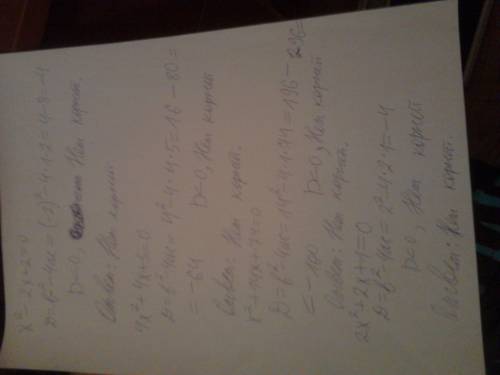 x² - 2x + 2 = 0
D = b² - 4ac = (-2)² - 4·1·2 = 4 - 8 = -4
D < 0, Нет корней.
Ответ: Нет корней.
4x² + 4x + 5 = 0
D = b² - 4ac = 4² - 4·4·5 = 16 - 80 =
= -64 D < 0, Нет корней.
Ответ: Нет корней.
x² + 14x + 74 = 0
D = b² - 4ac = 14² - 4·1·74 = 196 - 296 =
= -100 D < 0, Нет корней
Ответ: Нет корней.
2x² + 2x + 1 = 0
D = b² - 4ac = 2² - 4·2·1 = -4
D < 0, Нет корней
Ответ: Нет корней.